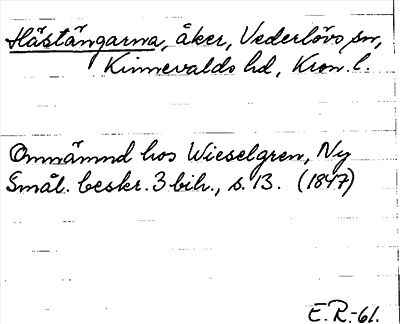 Hästängarna, åker, Vederlövs sn,
Kinnevalds hd, Kron. l.
Omnämnd hos Wieselgren, Ny
Smål. beskr. 3 bih., s. 13. (1847)
E.R.-61.